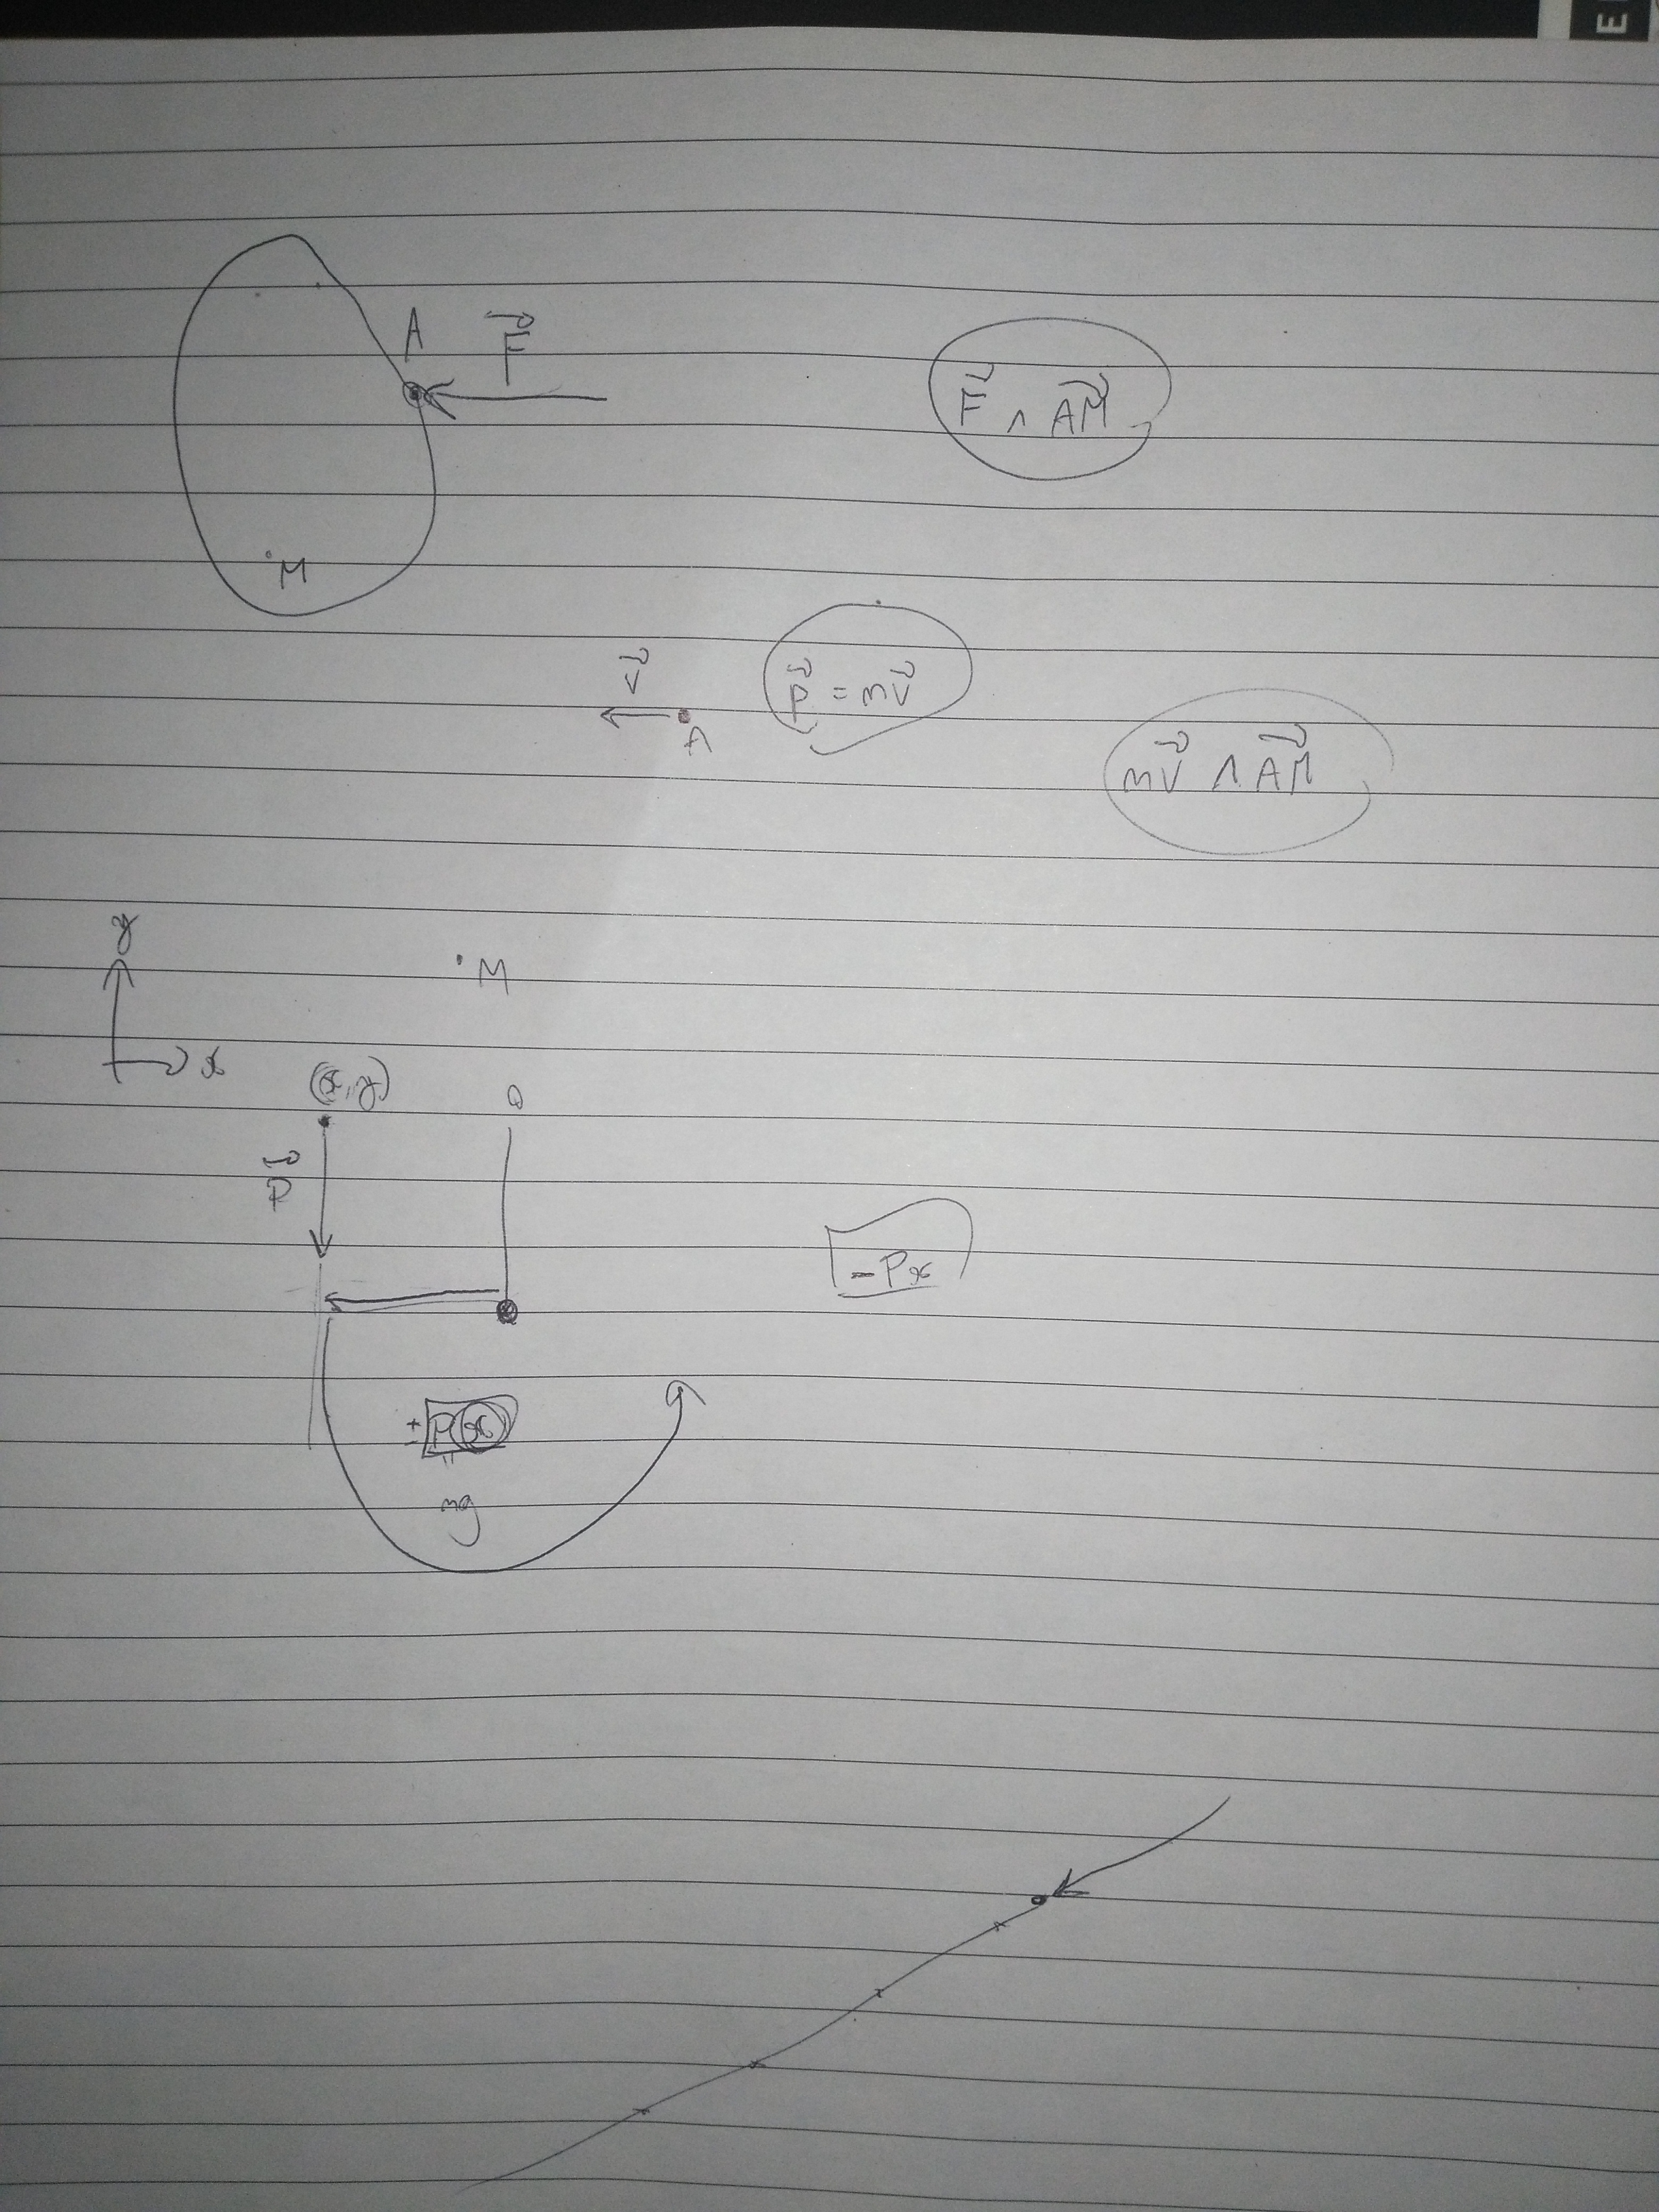 E
A
F
F ∧ AM
M
V
A
p = mv
mv ∧ AM
y
x
M
(x, y)
O
P
- Px
± P(x)
"
mg